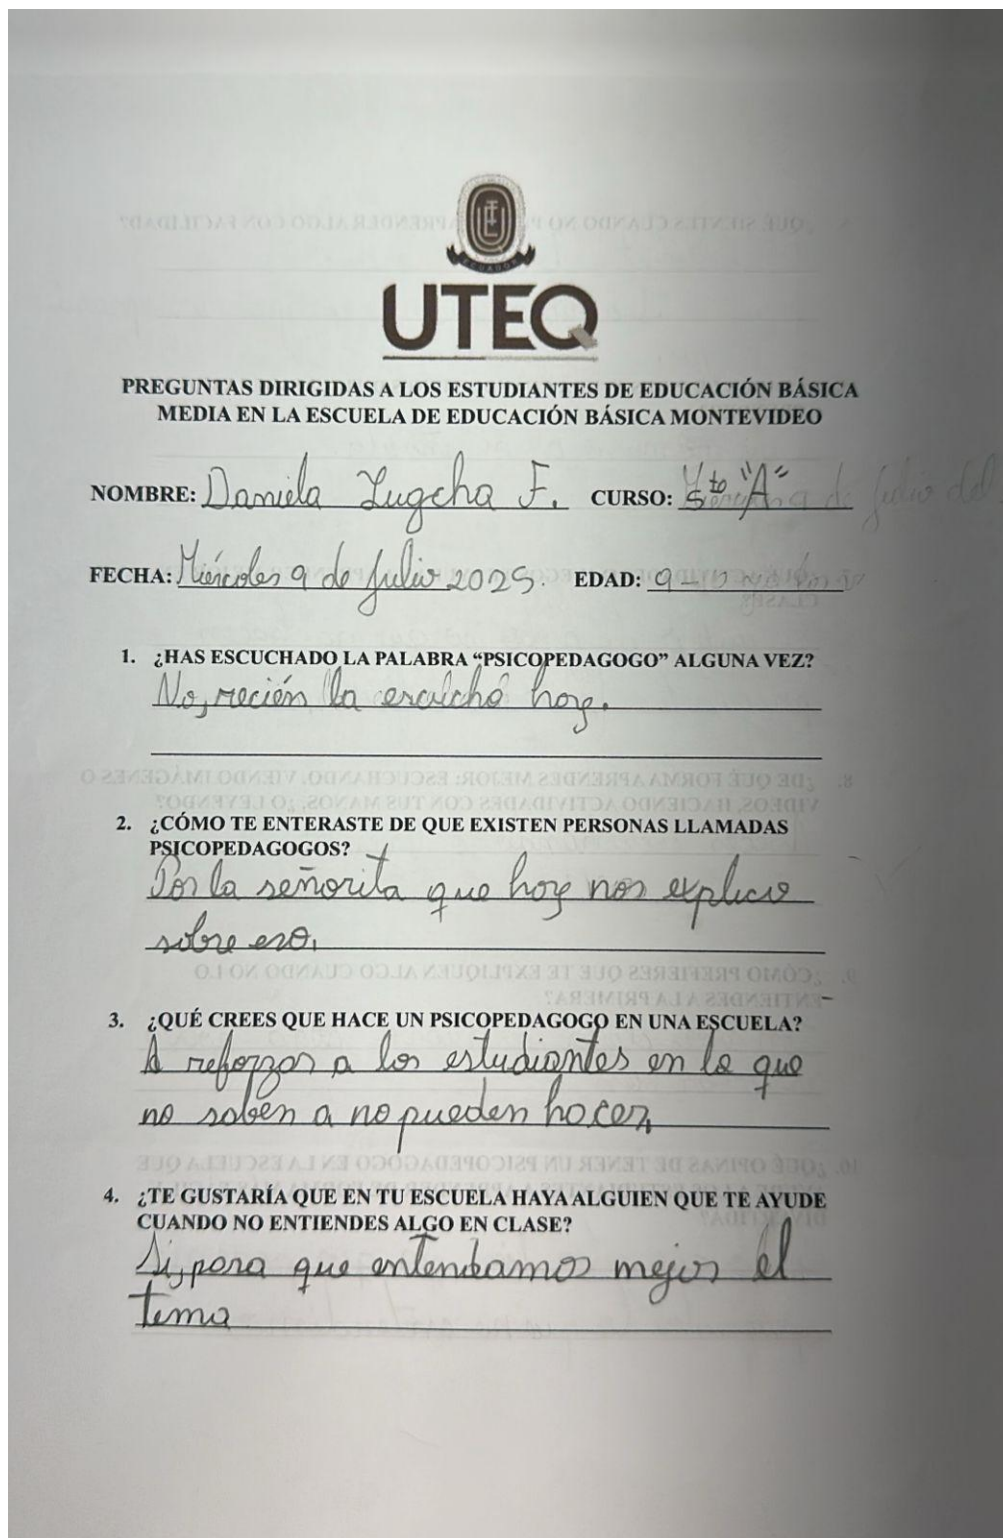 ECUADOR
UTEQ
PREGUNTAS DIRIGIDAS A LOS ESTUDIANTES DE EDUCACIÓN BÁSICA
MEDIA EN LA ESCUELA DE EDUCACIÓN BÁSICA MONTEVIDEO
NOMBRE: Daniela Lugcha F. CURSO: 5to "A"
FECHA: Miércoles 9 de julio 2025. EDAD: 9
1. ¿HAS ESCUCHADO LA PALABRA “PSICOPEDAGOGO” ALGUNA VEZ?
No, recién la escuché hoy.
2. ¿CÓMO TE ENTERASTE DE QUE EXISTEN PERSONAS LLAMADAS
PSICOPEDAGOGOS?
Por la señorita que hoy nos explico
sobre eso.
3. ¿QUÉ CREES QUE HACE UN PSICOPEDAGOGO EN UNA ESCUELA?
A reforzar a los estudiantes en lo que
no saben a no pueden hacer.
4. ¿TE GUSTARÍA QUE EN TU ESCUELA HAYA ALGUIEN QUE TE AYUDE
CUANDO NO ENTIENDES ALGO EN CLASE?
Si, para que entendamos mejor el
tema